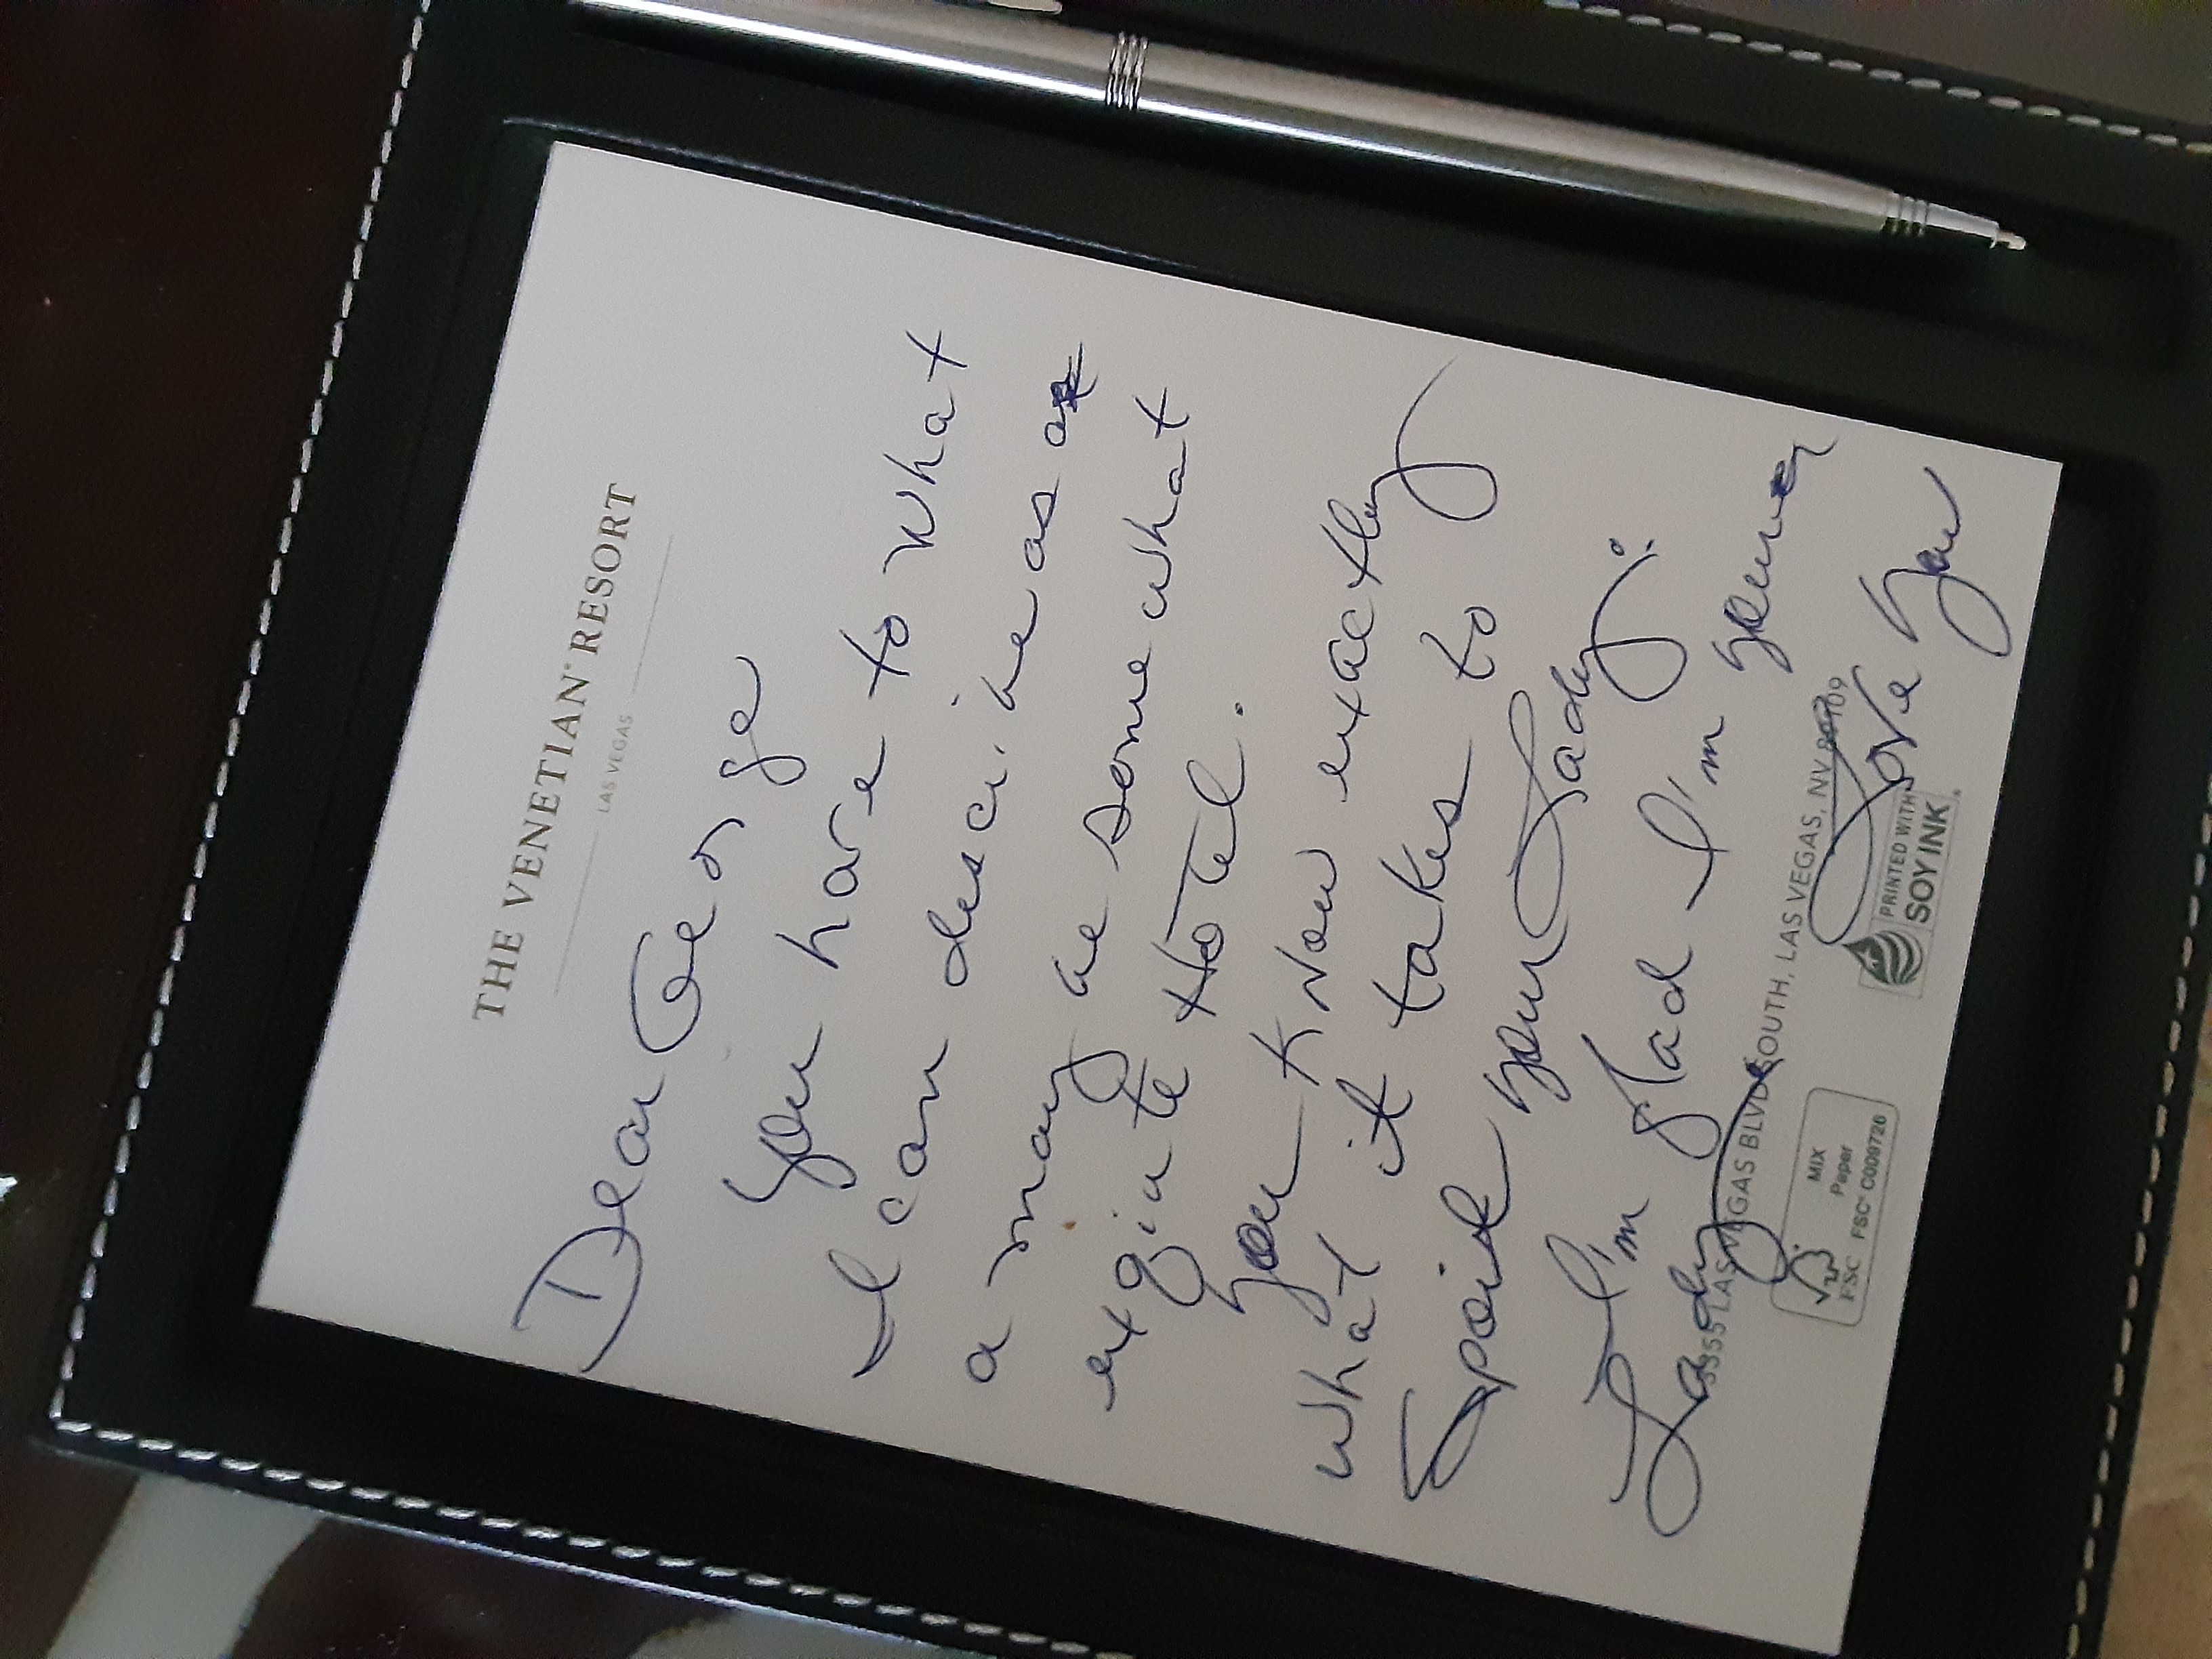 THE VENETIAN® RESORT
LAS VEGAS
Dear George
you have to what
I can describe as
a may be somewhat
exqiute Hotel.
you know exactly
what it takes to
Spoil your Lady.
I'm glad I'm your
Lady
3355 LAS VEGAS BLVD SOUTH, LAS VEGAS, NV 89109
Love you
MIX
Paper
FSC FSC® C009726
PRINTED WITH
SOY INK